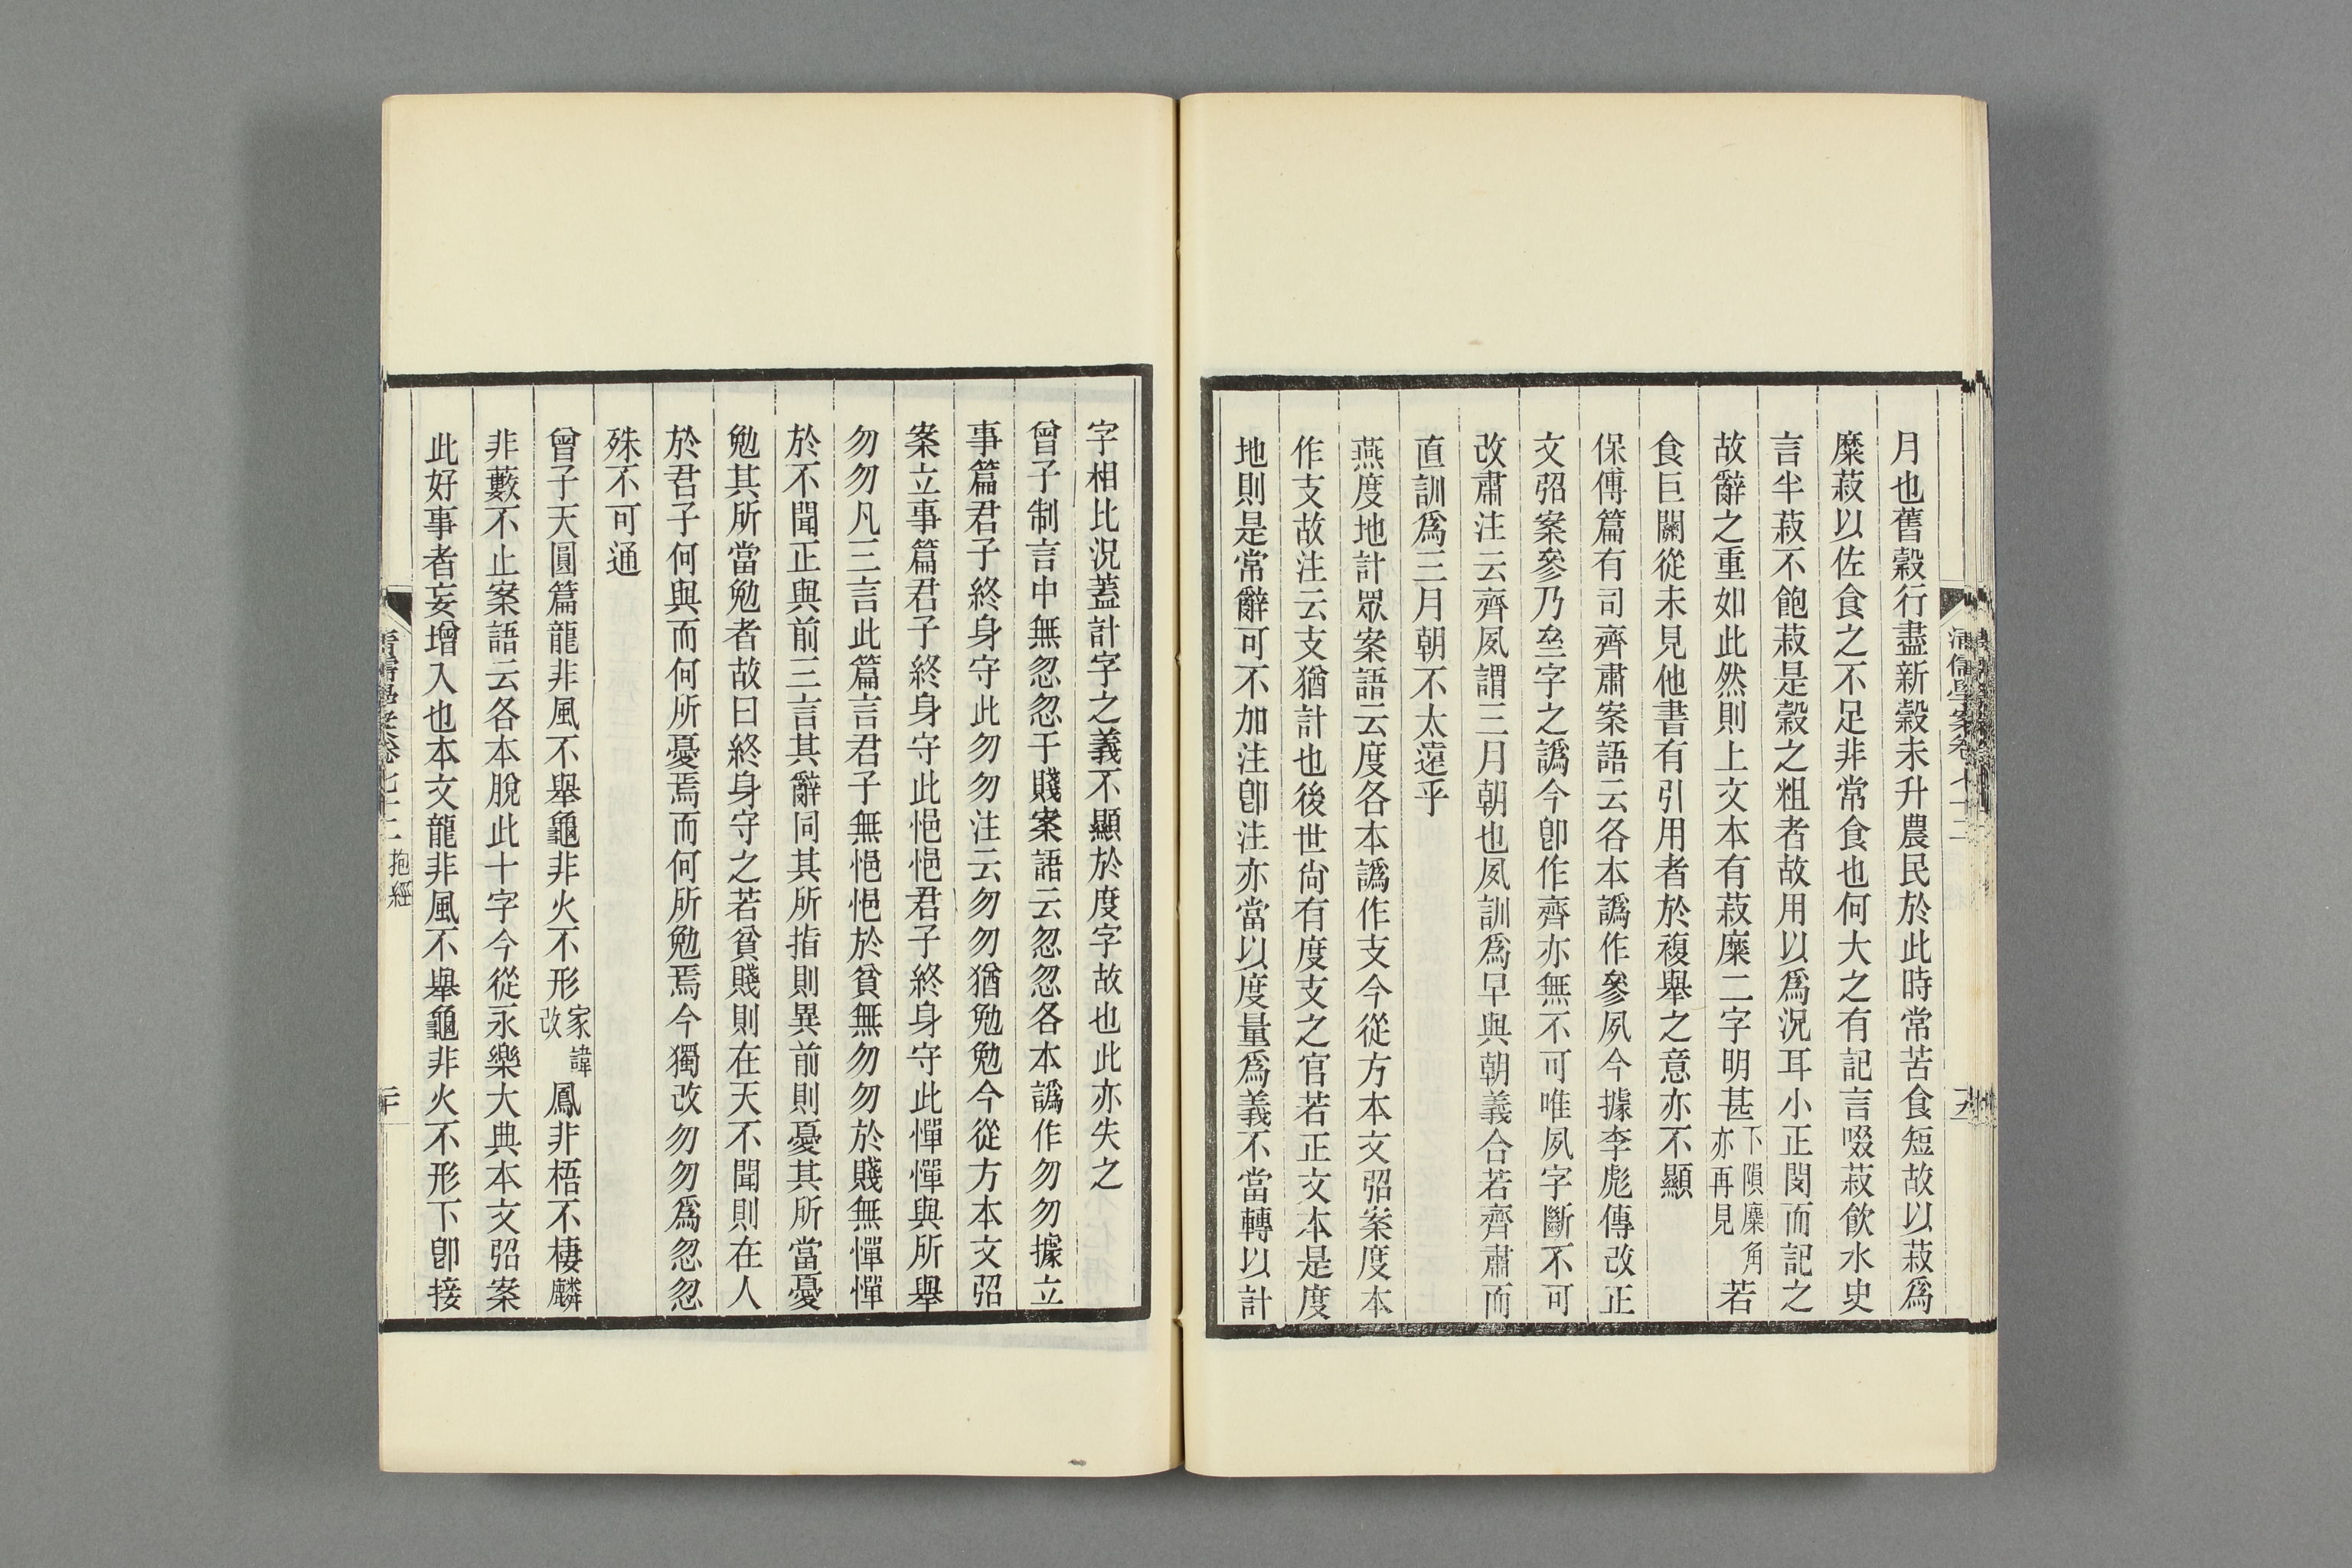 月也舊穀行盡新穀未升農民於此時常苦食短故以菽爲
糜菽以佐食之不足非常食也何大之有記言啜菽飮水史
言半菽不飽菽是穀之粗者故用以爲況耳小正閔而記之
故辭之重如此然則上文本有菽糜二字明甚下隕麋角亦再見若
食巨關從未見他書有引用者於複舉之意亦不顯
保傅篇有司齊肅案語云各本譌作參夙今據李彪傳改正
文弨案參乃亝字之譌今卽作齊亦無不可唯夙字斷不可
改肅注云齊夙謂三月朝也夙訓爲早與朝義合若齊肅而
直訓爲三月朝不太遠乎
燕度地計眾案語云度各本譌作支今從方本文弨案度本
作支故注云支猶計也後世尙有度支之官若正文本是度
地則是常辭可不加注卽注亦當以度量爲義不當轉以計
字相比況蓋計字之義不顯於度字故也此亦失之
曾子制言中無忽忽于賤案語云忽忽各本譌作勿勿據立
事篇君子終身守此勿勿注云勿勿猶勉勉今從方本文弨
案立事篇君子終身守此悒悒君子終身守此憚憚與所舉
勿勿凡三言此篇言君子無悒悒於貧無勿勿於賤無憚憚
於不聞正與前三言其辭同其所指則異前則憂其所當憂
勉其所當勉者故曰終身守之若貧賤則在天不聞則在人
於君子何與而何所憂焉而何所勉焉今獨改勿勿爲忽忽
殊不可通
曾子天圓篇龍非風不舉龜非火不形家諱改鳳非梧不棲麟
非藪不止案語云各本脫此十字今從永樂大典本文弨案
此好事者妄增入也本文龍非風不舉龜非火不形下卽接
清儒學案卷七十二 抱經
二十